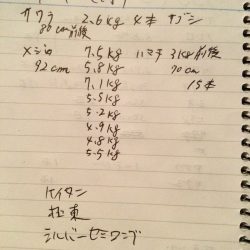 サワラ 2.6kg 4本 ナブシ
80cm前後
メジロ 7.5kg ハマチ 3kg前後
92cm 5.8kg 70cm
7.1kg 15本
5.5kg
5.2kg
4.9kg
4.8kg
5.5kg
ケイタン
極東
シルバーセミロング